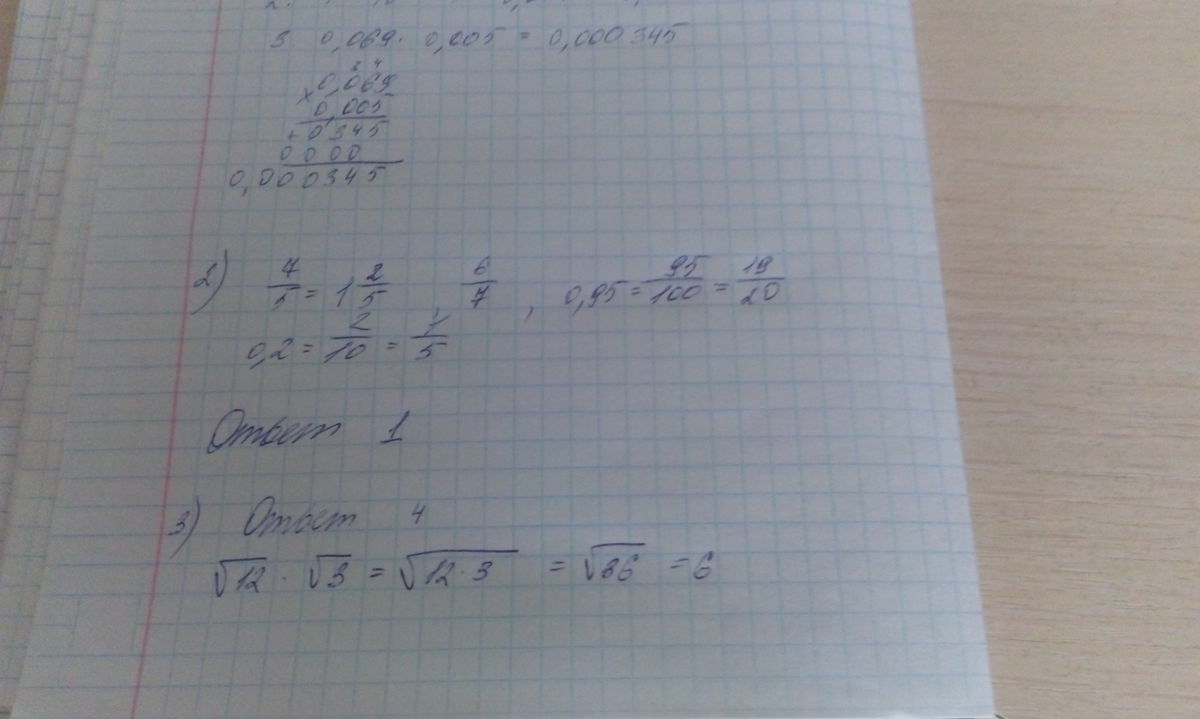 3 0,069 · 0,005 = 0,000345
3 4
× 0,069
0,005
+ 0 345
0 0 0 0
0,000345
2) 7/5 = 1 2/5 , 6/7 , 0,95 = 95/100 = 19/20
0,2 = 2/10 = 1/5
Ответ 1
3) Ответ 4
√12 · √3 = √12 · 3 = √36 = 6